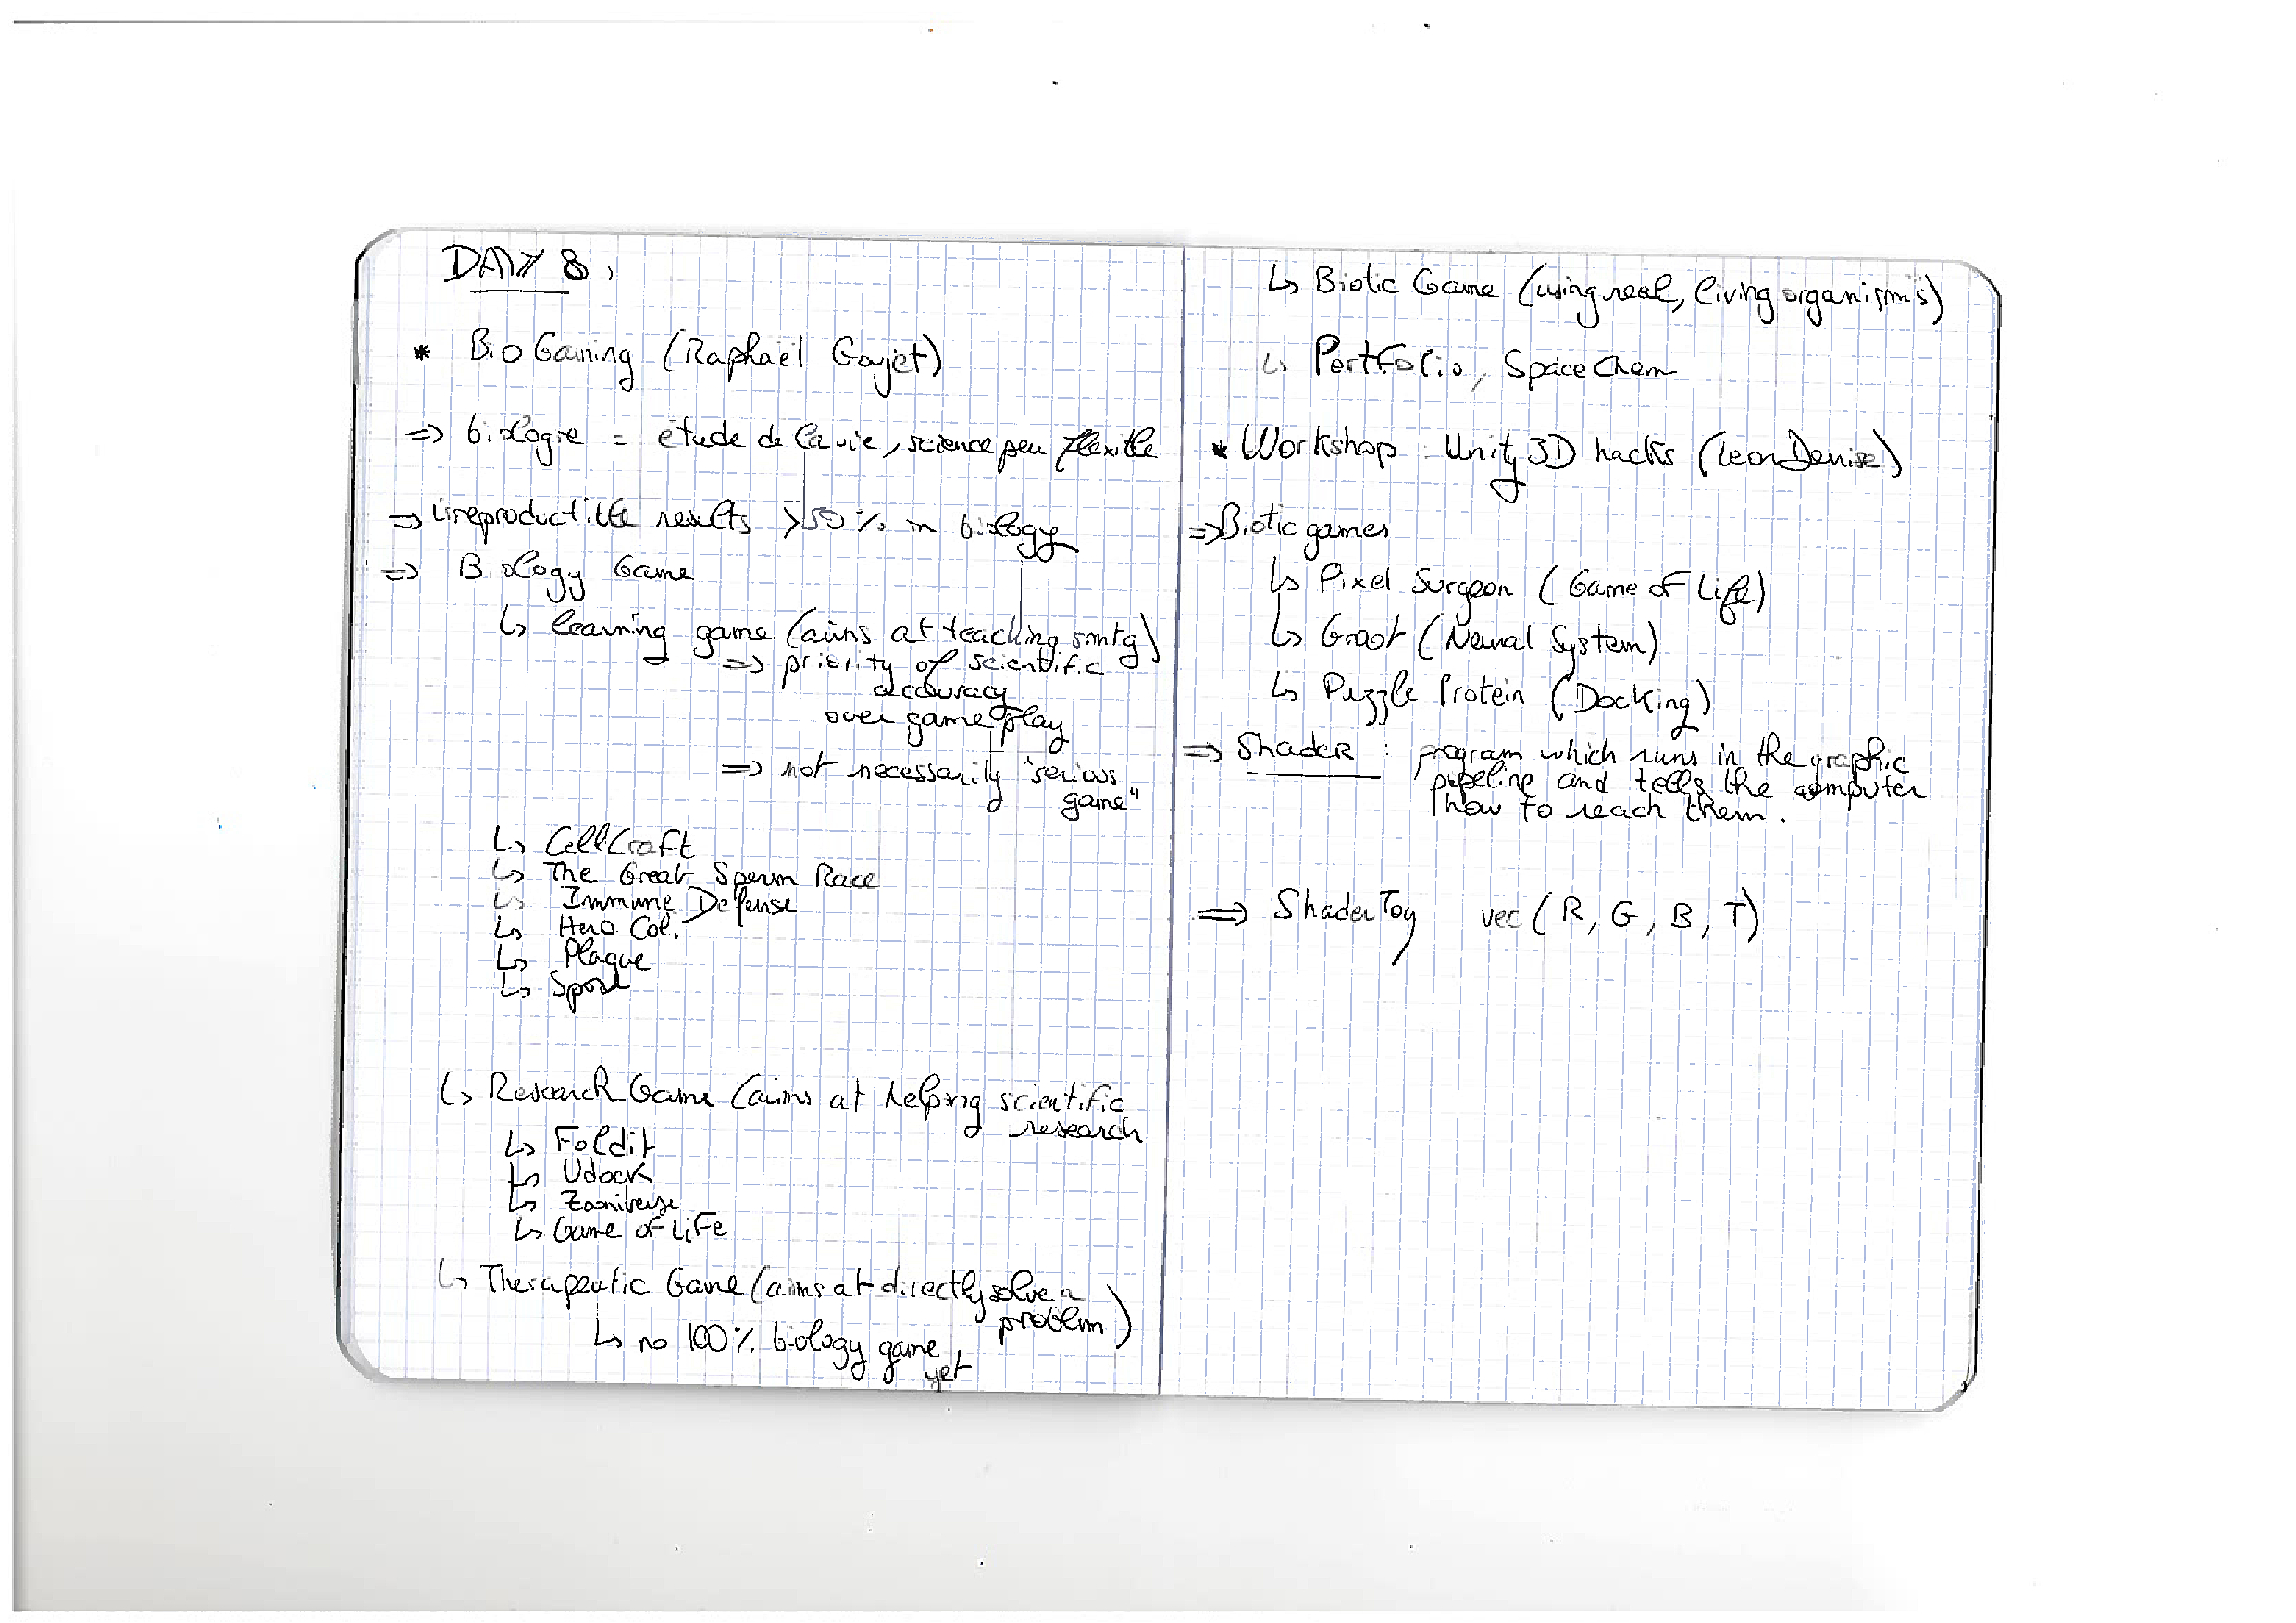 DAY 8,
* BioGaming (Raphaël Goujet)
=> biologie = etude de la vie, science peu flexible
=> Lireproductible results >50% in biology
=> Biology Game
↳ learning game (aims at teaching smtg)
=> priority of scientific
accuracy
over gameplay
=> not necessarily "serious
game"
↳ CellCraft
↳ The Great Sperm Race
↳ Immune Defense
↳ Hero Col.
↳ Plague
↳ Spore
↳ Research Game (aims at helping scientific
research
↳ Foldit
↳ Udock
↳ Zooniverse
↳ Game of Life
↳ Therapeutic Game (aims at directly solve a
problem)
↳ no 100% biology game
yet
↳ Biotic Game (using real, living organisms)
↳ Portfolio, SpaceChem
* Workshop : Unity3D hacks (Leon Denise)
=> Biotic games
↳ Pixel Surgeon (Game of Life)
↳ Groot (Neural System)
↳ Puzzle Protein (Docking)
=> Shader : program which runs in the graphic
pipeline and tells the computer
how to reach them.
=> ShaderToy vec(R, G, B, T)